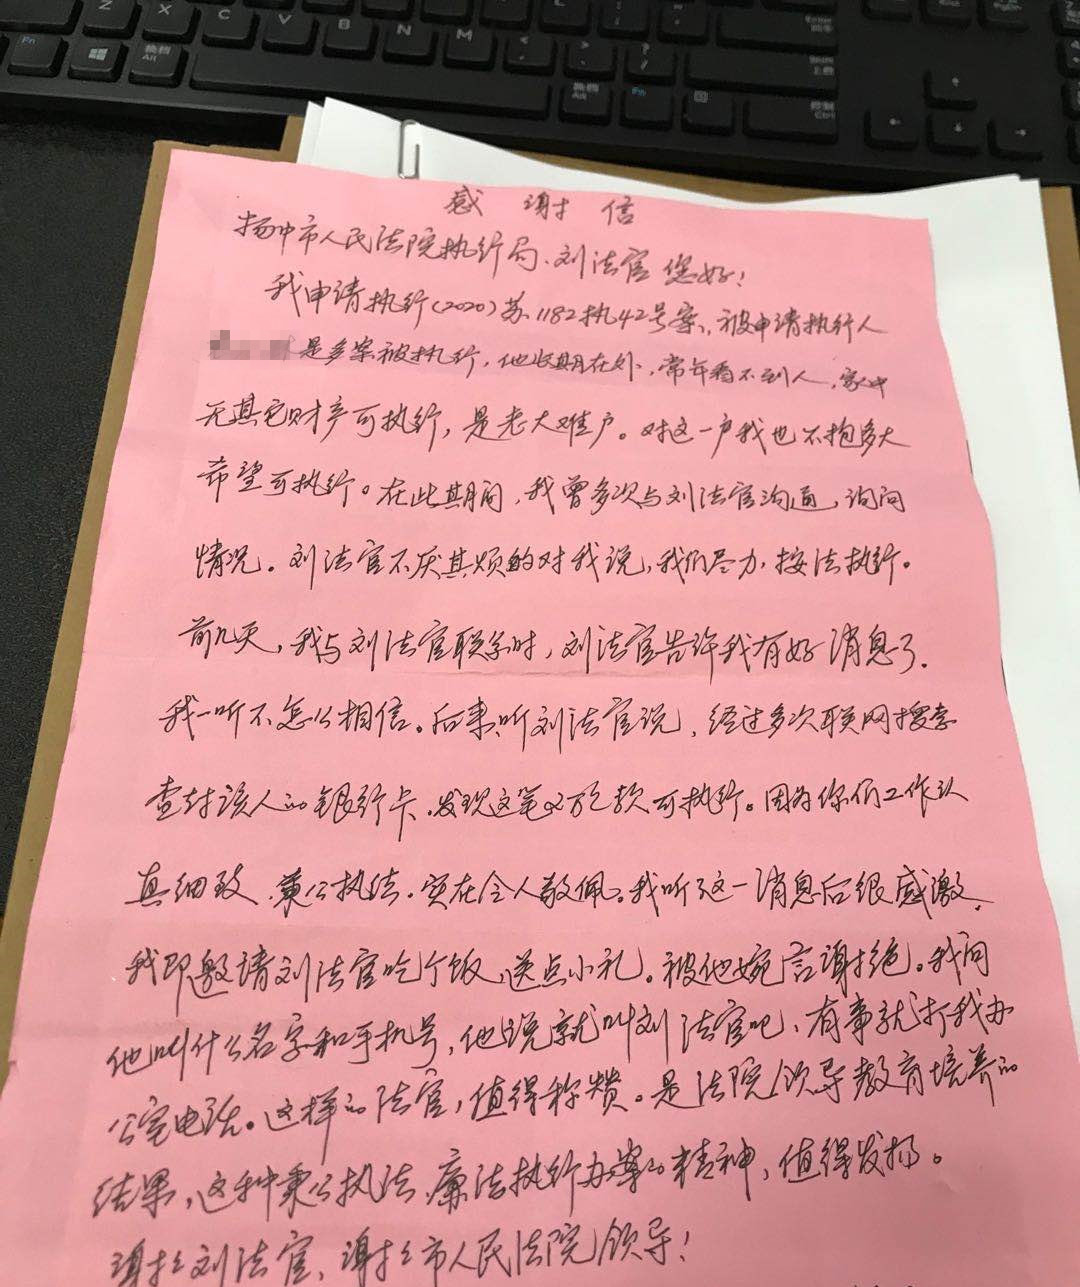 Z
X
C
V
B
N
M
Enter
回车
Shift
上档
Fn
换档
Alt
换档
Alt
Fn
控制
Ctrl
感谢信
扬中市人民法院执行局、刘法官您好！
我申请执行(2020)苏1182执42号案，被申请执行人
是多案被执行，他长期在外，常年看不到人，家中
无其它财产可执行，是老大难户。对这一户我也不抱多大
希望可执行。在此期间，我曾多次与刘法官沟通，询问
情况。刘法官不厌其烦的对我说，我们尽力，按法执行。
前几天，我与刘法官联系时，刘法官告许我有好消息了．
我一听不怎么相信。后来听刘法官说，经过多次联网搜索
查封该人的银行卡．发现这笔2万元款可执行。因为你们工作认
真细致、秉公执法．实在令人敬佩。我听了这一消息后很感激．
我即邀请刘法官吃个饭，送点小礼。被他婉言谢绝。我问
他叫什么名字和手机号，他说就叫刘法官吧、有事就打我办
公室电话。这样的法官，值得称赞。是法院领导教育培养的
结果，这种秉公执法、廉洁执行办案的精神，值得发扬。
谢谢刘法官、谢谢市人民法院领导！